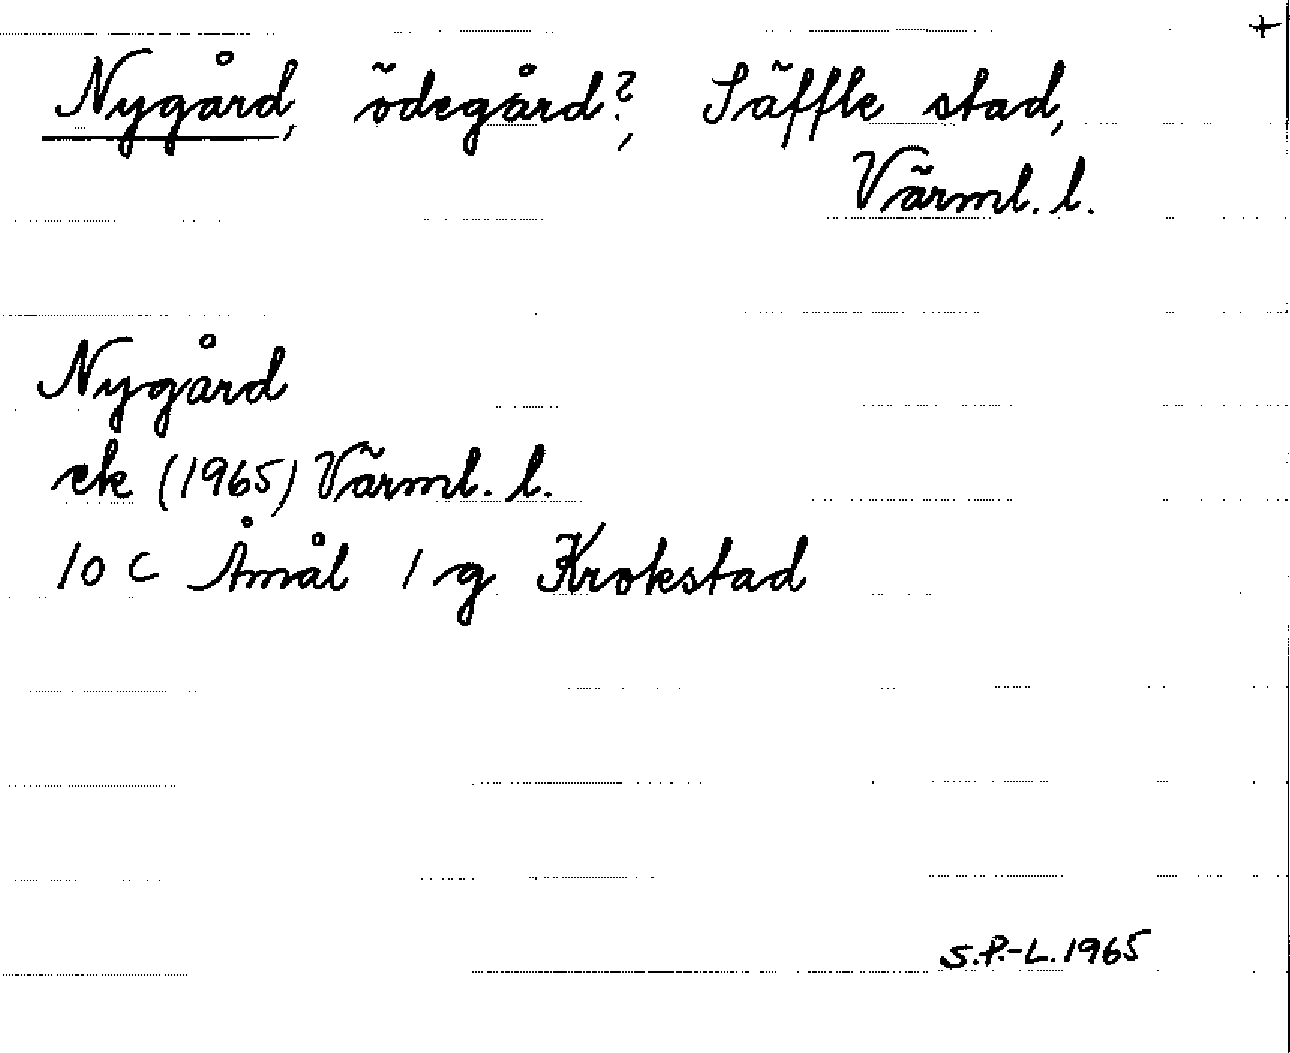 +
Nygård, ödegård?, Säffle stad,
Värml. l.
Nygård
ek (1965) Värml. l.
10 C Åmål 1 g Krokstad
S.P.-L. 1965